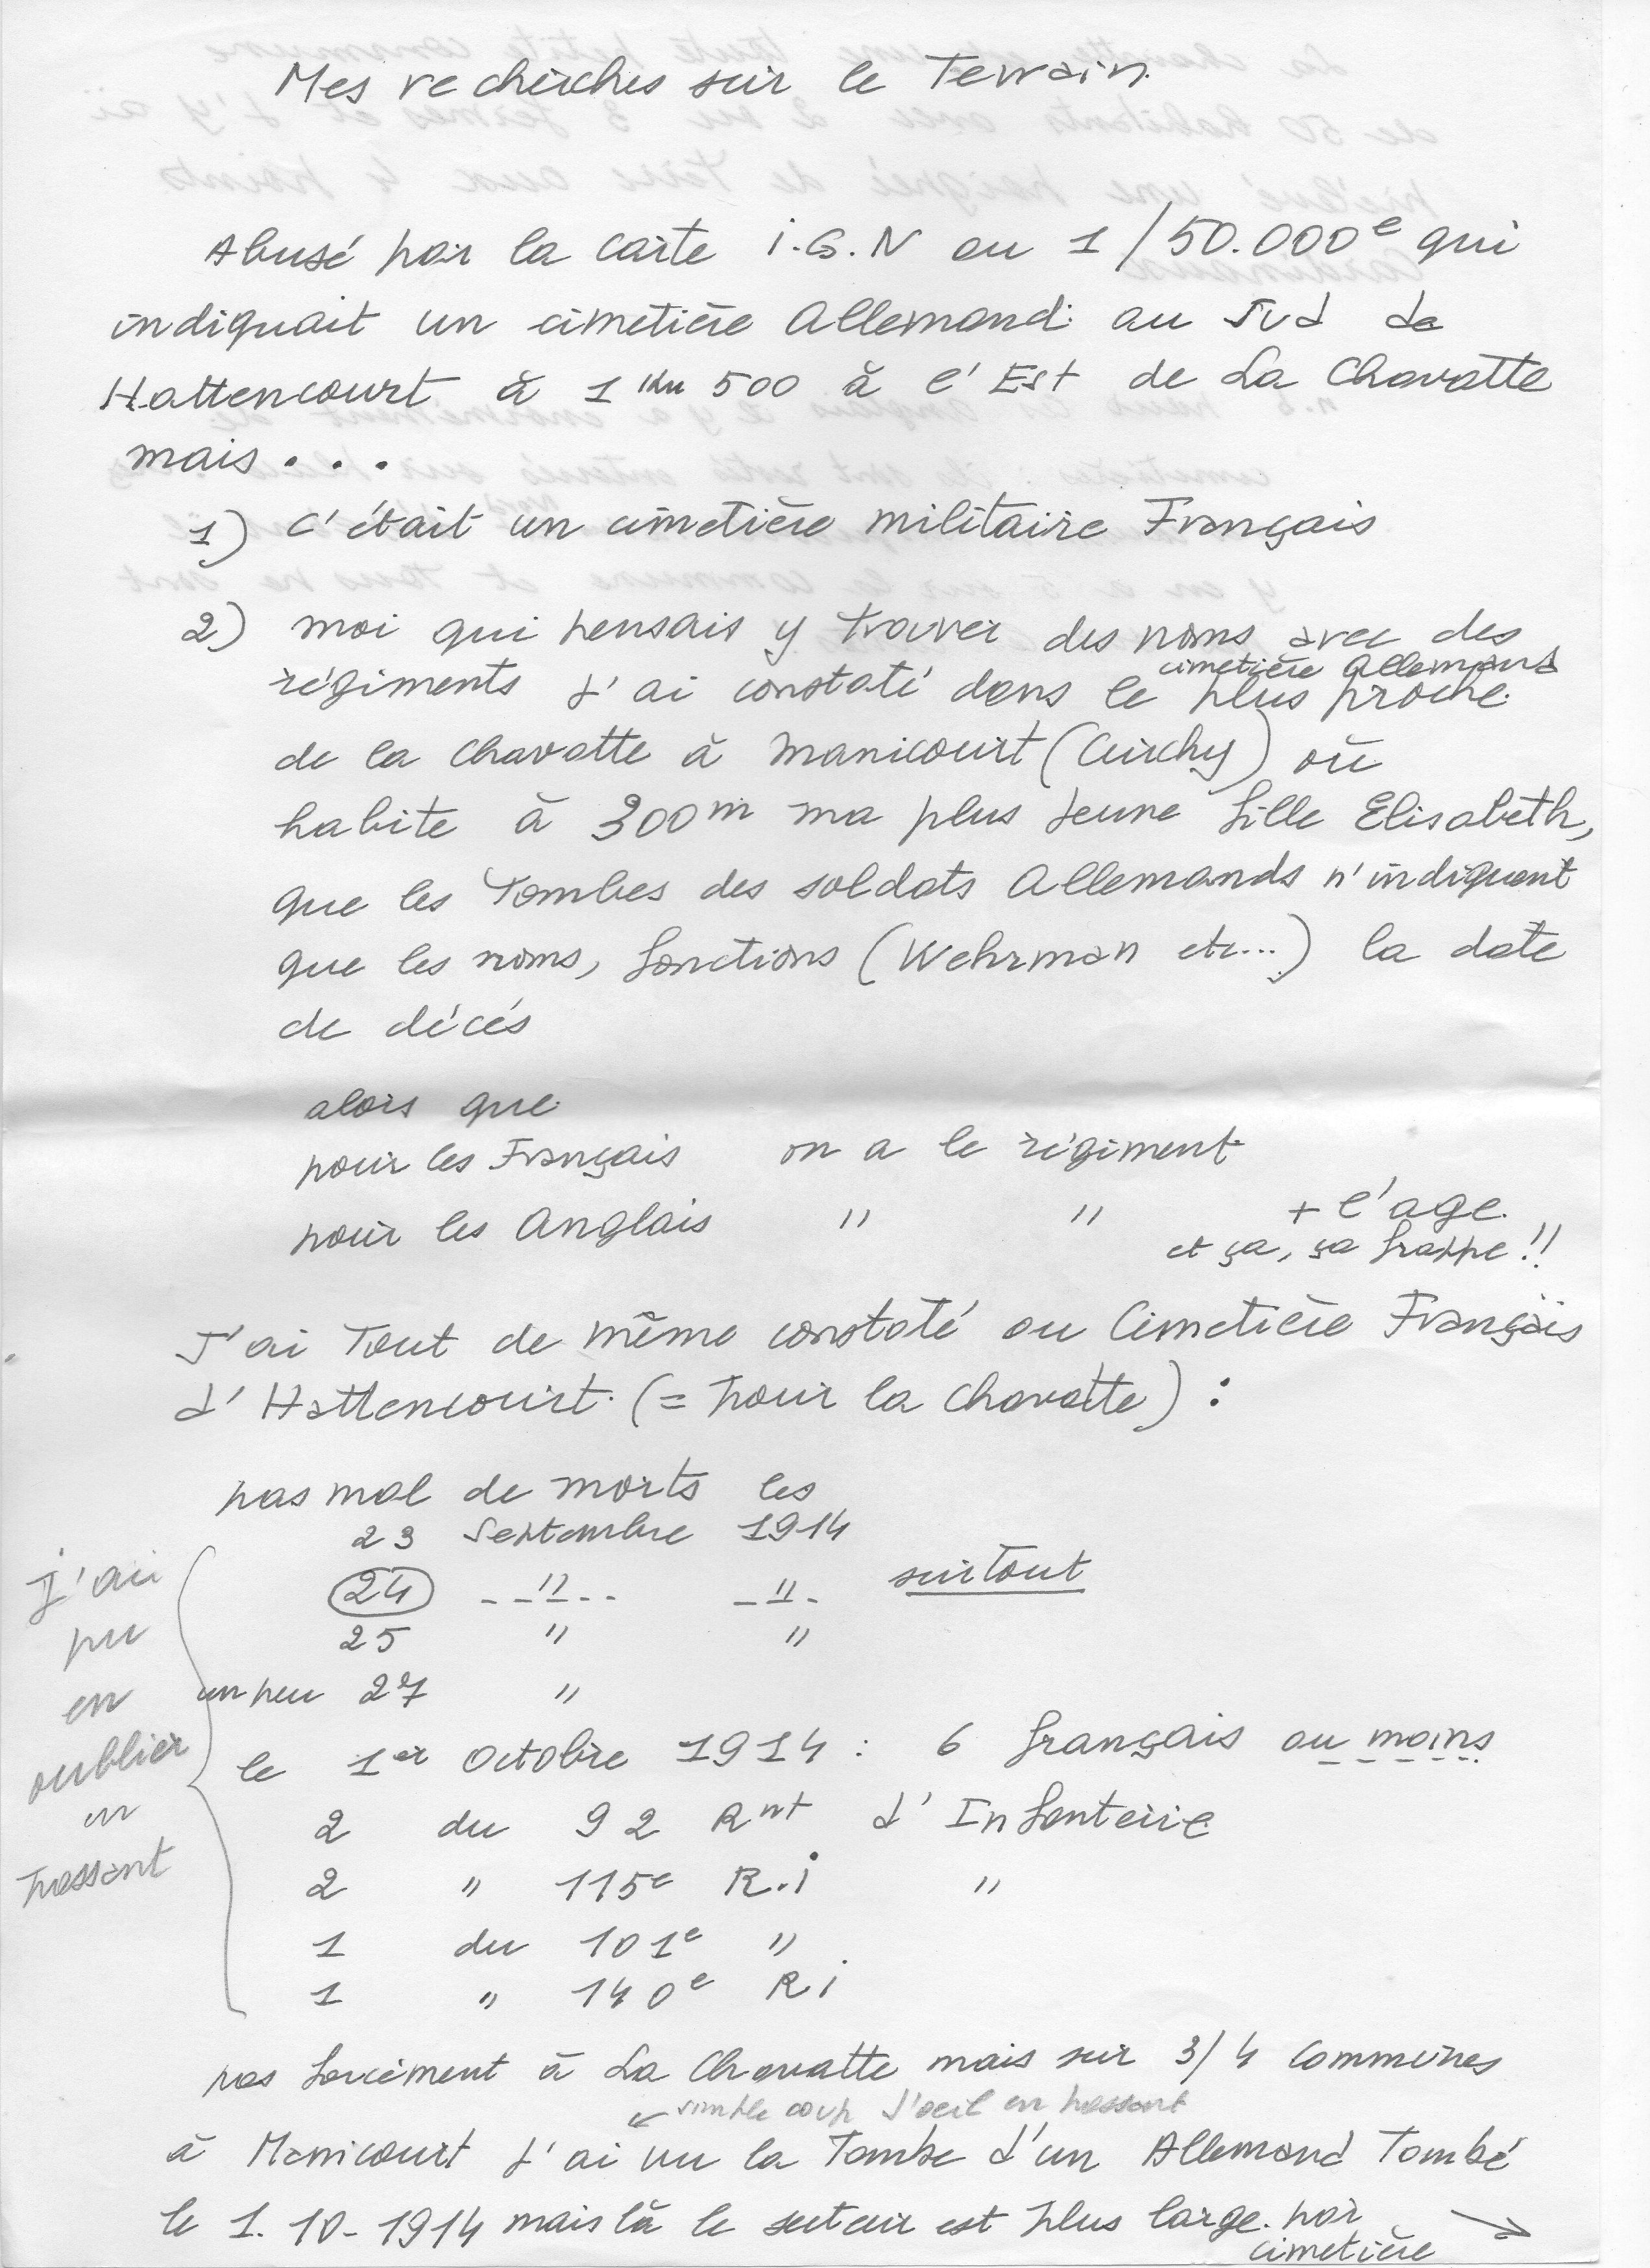 Mes recherches sur le Terrain
Abusé par la carte I.G.N au 1/50.000e qui
indiquait un cimetière Allemand au Sud de
Hattencourt à 1 km 500 à l'Est de La Chavatte
mais . . .
1) c'était un cimetière militaire Français
2) moi qui pensais y trouver des noms avec des
cimetière Allemand
régiments J'ai constaté dans le plus proche
de la Chavatte à Manicourt (Curchy) où
habite à 300m ma plus jeune fille Elisabeth,
que les Tombes des soldats Allemands n'indiquent
que les noms, fonctions (Wehrman etc...) la date
de décés
alors que
pour les Français on a le régiment
pour les Anglais " " + l'age
et ça, ça frappe !!
J'ai Tout de même constaté au Cimetière Français
d'Hattencourt (= pour la Chavatte) :
pas mal de morts les
23 Septembre 1914
24 " " surtout
25 " "
un peu 27 "
le 1er Octobre 1914 : 6 français au moins
2 du 92 Rmt d'Infanterie
2 " 115e R.i "
1 du 101e "
1 " 140e Ri
j'ai
pu
en
oublier
en
passant
pas forcément à La Chavatte mais sur 3/4 communes
← simple coup d'oeil en passant
à Manicourt J'ai vu la Tombe d'un Allemand Tombé
le 1.10-1914 mais là le secteur est plus large par →
cimetière